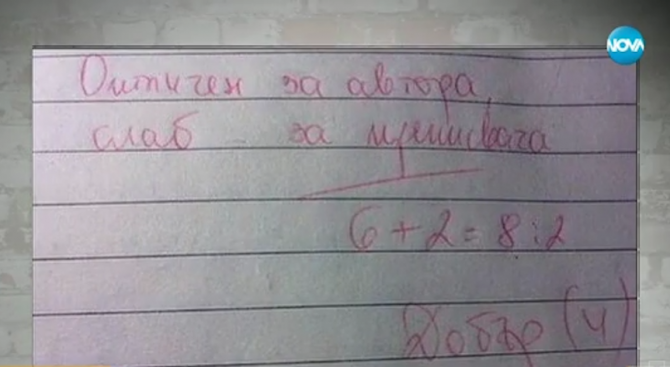 NOVA
Отличен за автора,
слаб за преписвача
6+2=8:2
Добър (4)